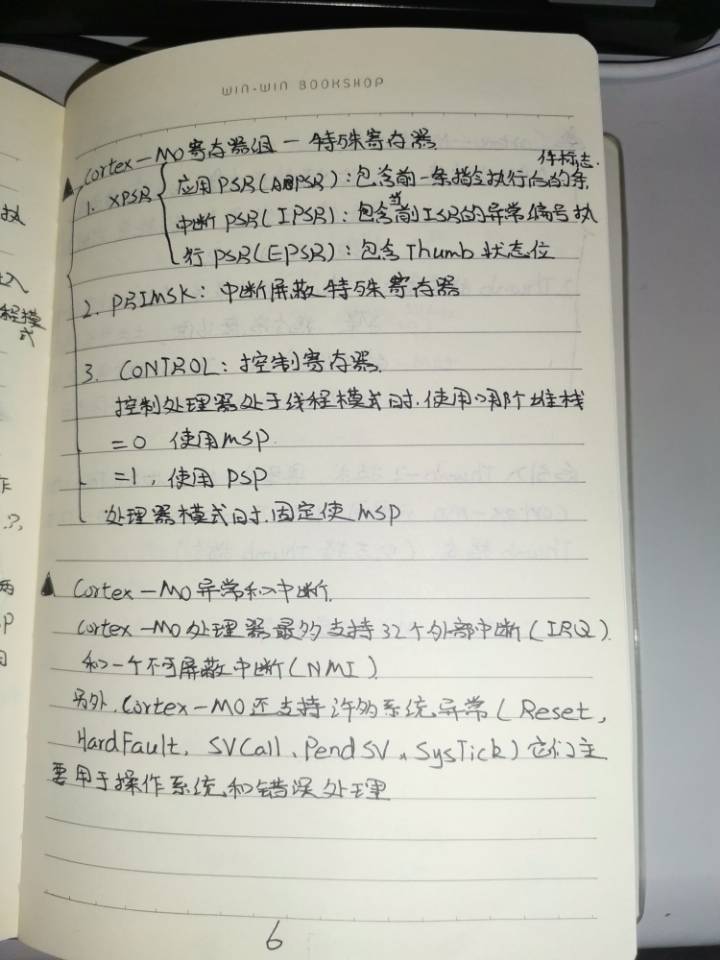 WIN-WIN BOOKSHOP
Cortex-M0寄存器组-特殊寄存器
件标志.
1. xPSR 应用PSR(APSR):包含前一条指令执行后的条
中断PSR(IPSR):包含当前ISR的异常编号执
行PSR(EPSR):包含Thumb状态位
2. PRIMSK:中断屏蔽特殊寄存器
3. CONTROL:控制寄存器.
控制处理器处于线程模式时.使用哪个堆栈
=0 使用MSP
=1,使用PSP
处理器模式时.固定使MSP
Cortex-M0异常和中断.
Cortex-M0处理器最多支持32个外部中断(IRQ)
和一个不可屏蔽中断(NMI)
另外.Cortex-M0还支持许多系统异常(Reset,
HardFault、SVCall、PendSV、SysTick)它们主
要用于操作系统和错误处理
6
执
入
程模
式
作
两
P